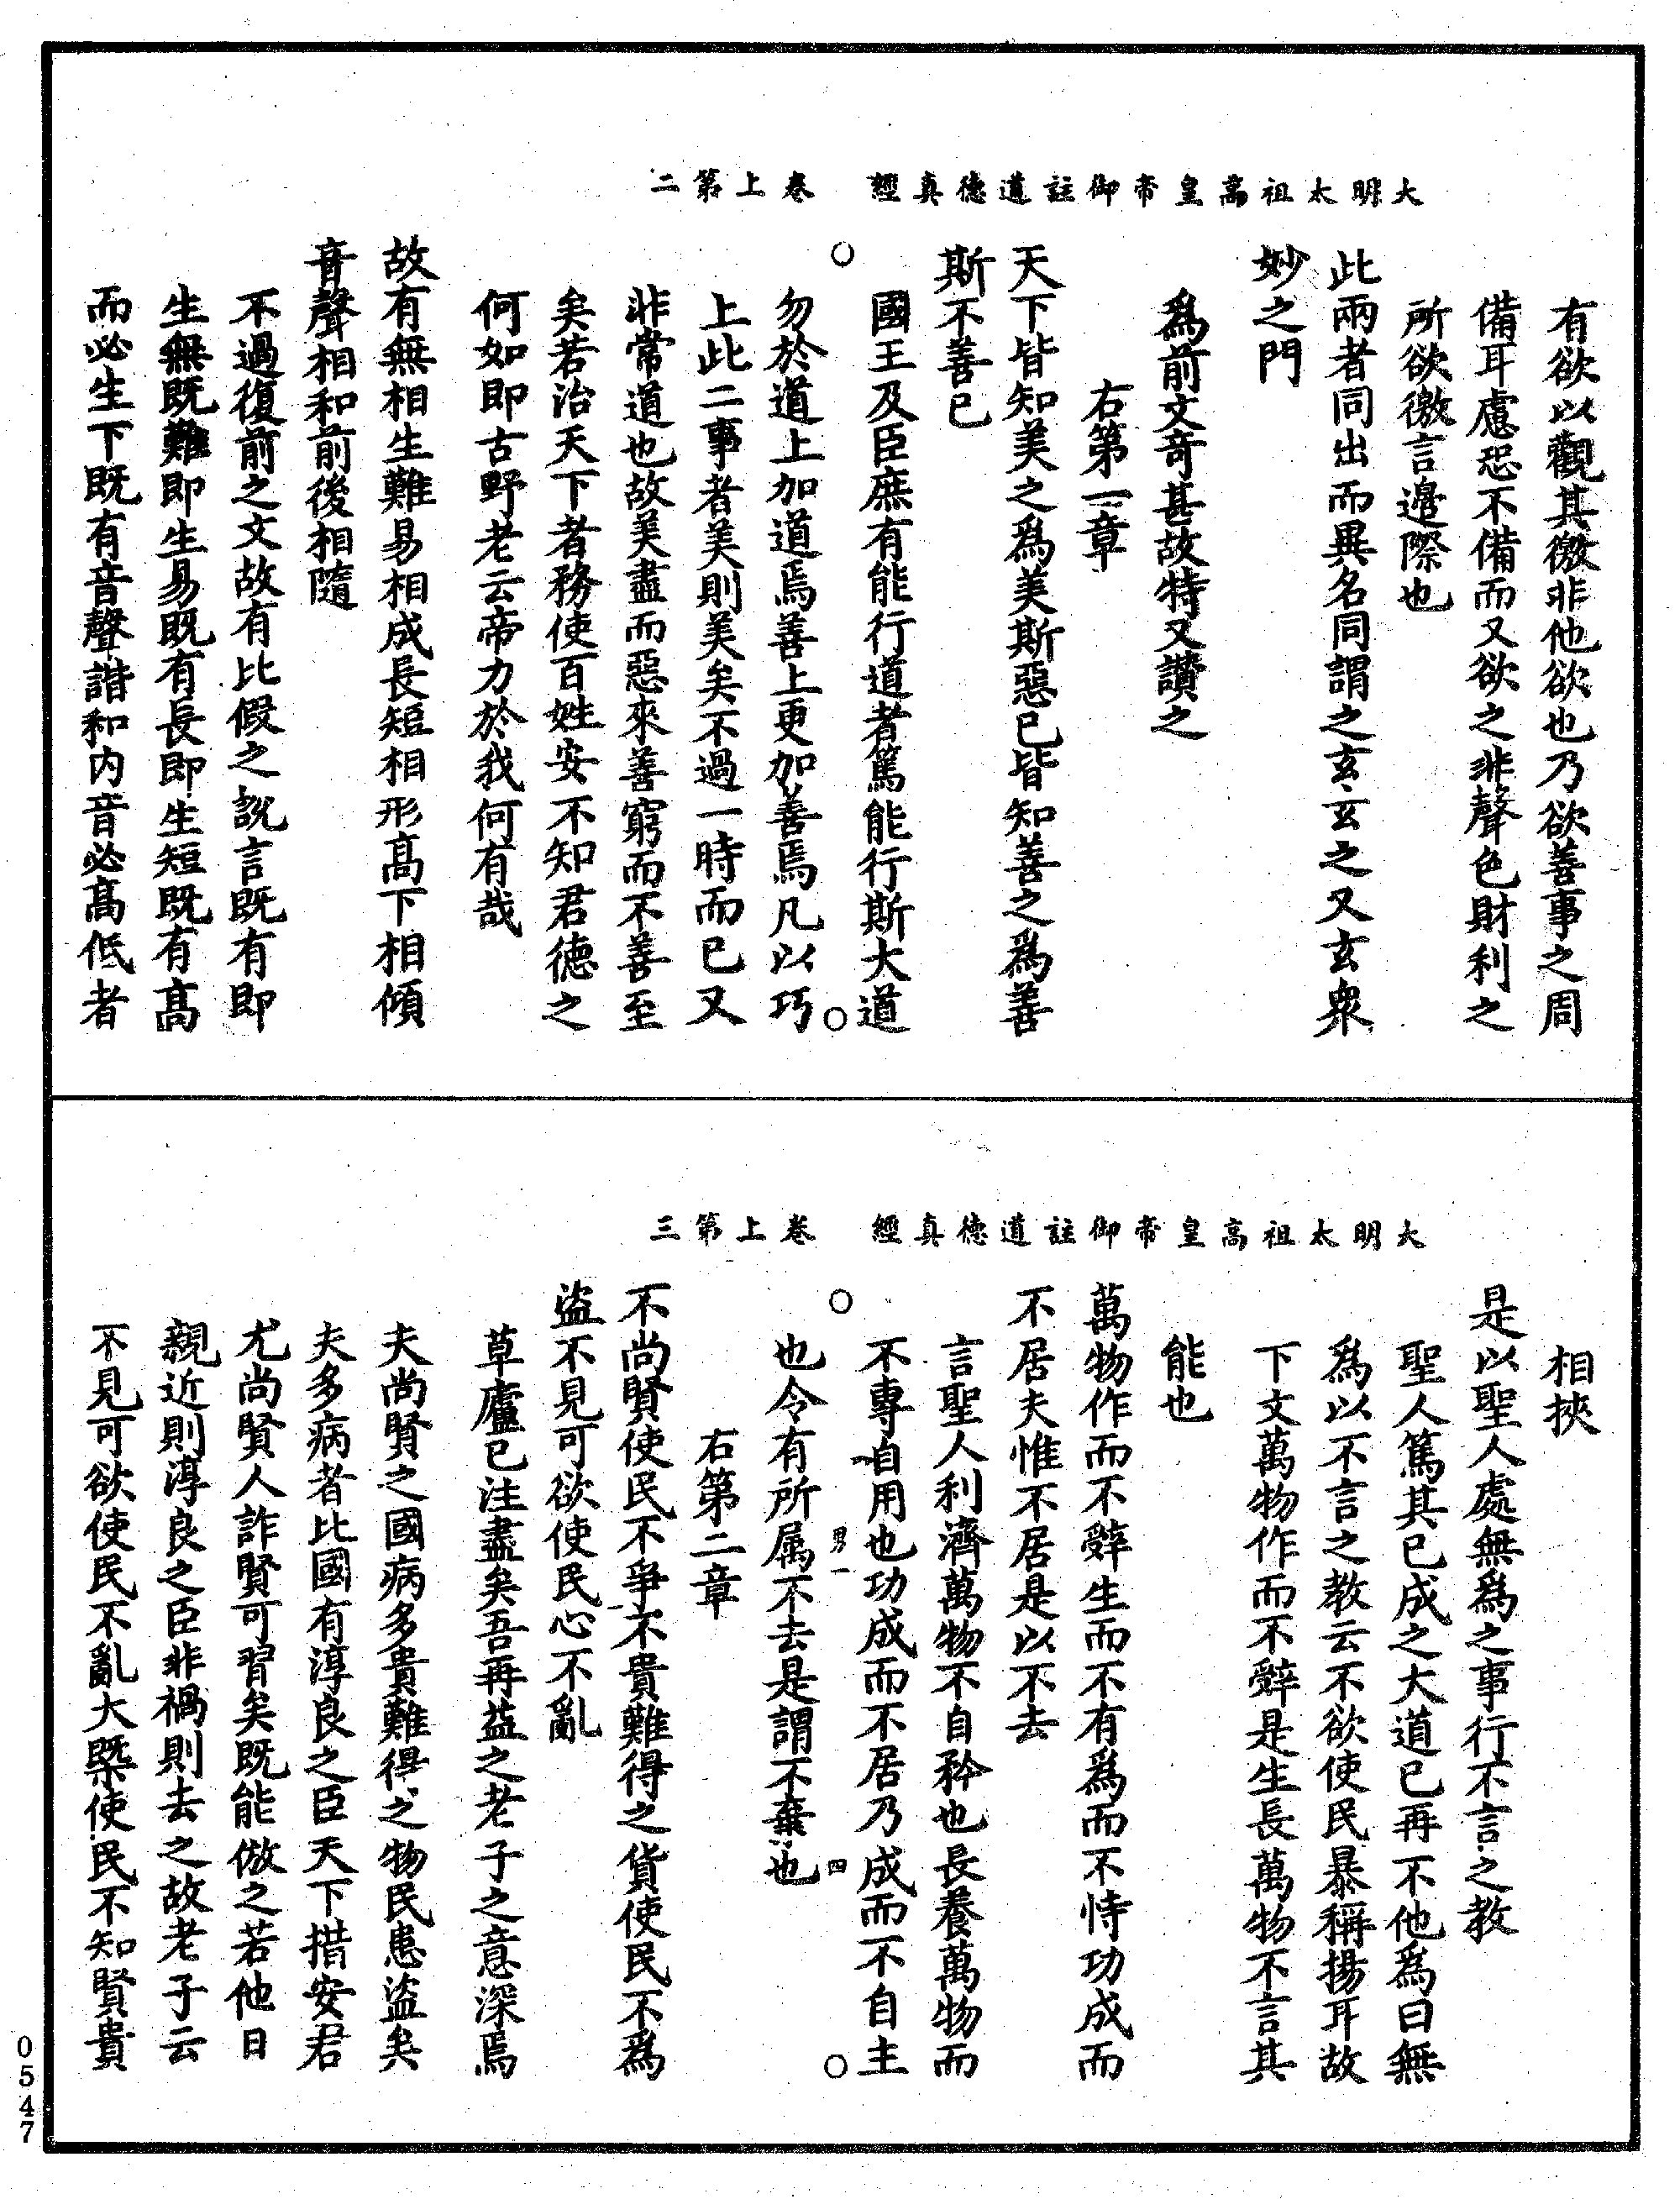 大明太祖高皇帝御註道德真經　卷上第二
有欲以觀其徼非他欲也乃欲善事之周
備耳慮恐不備而又欲之非聲色財利之
所欲徼言邊際也
此兩者同出而異名同謂之玄玄之又玄衆
妙之門
爲前文奇甚故特又讚之
右第一章
天下皆知美之爲美斯惡已皆知善之爲善
斯不善已
國王及臣庶有能行道者篤能行斯大道
勿於道上加道焉善上更加善焉凡以巧
上此二事者美則美矣不過一時而已又
非常道也故美盡而惡來善窮而不善至
矣若治天下者務使百姓安不知君德之
何如即古野老云帝力於我何有哉
故有無相生難易相成長短相形高下相傾
音聲相和前後相隨
不過復前之文故有比假之説言既有即
生無既難即生易既有長即生短既有高
而必生下既有音聲諧和内音必高低者
大明太祖高皇帝御註道德真經　卷上第三
相挾
是以聖人處無爲之事行不言之教
聖人篤其已成之大道已再不他爲曰無
爲以不言之教云不欲使民暴稱揚耳故
下文萬物作而不辭是生長萬物不言其
能也
萬物作而不辭生而不有爲而不恃功成而
不居夫惟不居是以不去
言聖人利濟萬物不自矜也長養萬物而
不專自用也功成而不居乃成而不自主
男一　四
也令有所属不去是謂不棄也
右第二章
不尚賢使民不爭不貴難得之貨使民不爲
盜不見可欲使民心不亂
草廬已注盡矣吾再益之老子之意深焉
夫尚賢之國病多貴難得之物民患盜矣
夫多病者比國有淳良之臣天下措安君
尤尚賢人詐賢可習矣既能倣之若他日
親近則淳良之臣非禍則去之故老子云
不見可欲使民不亂大槩使民不知賢貴
0547